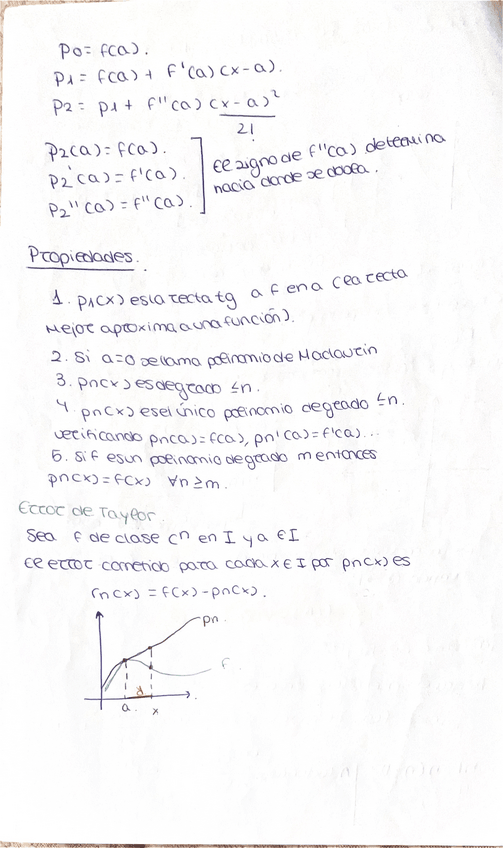 P0 = f(a).
P1 = f(a) + f'(a)(x-a).
P2 = p1 + f''(a) (x-a)²
2!
P2(a) = f(a).
P2'(a) = f'(a).
P2''(a) = f''(a).
el signo de f''(a) determina
hacia donde se dobla.
Propiedades.
1. p1(x) es la recta tg a f en a (la recta
mejor aproxima a una función).
2. Si a=0 se llama polinomio de Maclaurin
3. pn(x) es de grado ≤n.
4. pn(x) es el único polinomio de grado ≤n.
verificando pn(a)=f(a), pn'(a)=f'(a)...
5. Si f es un polinomio de grado m entonces
pn(x) = f(x) ∀n ≥ m.
Error de Taylor.
Sea f de clase Cⁿ en I y a ∈ I
el error cometido para cada x ∈ I por pn(x) es
rn(x) = f(x) - pn(x).
pn.
f.
a. x